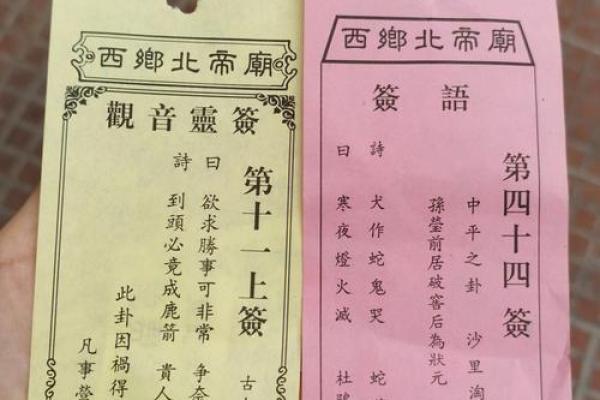 西鄉北帝廟
觀音靈簽
第十一上簽
古
曰 欲求勝事可非常 爭奈
詩 到頭必竟成鹿箭 貴人
此卦因禍得
凡事
西鄉北帝廟
簽語
第四十四簽
中平之卦 沙里淘
孫瑩前居破窰后為狀元
詩 犬作蛇鬼哭 蛇
曰 寒夜燈火滅 杜鵑